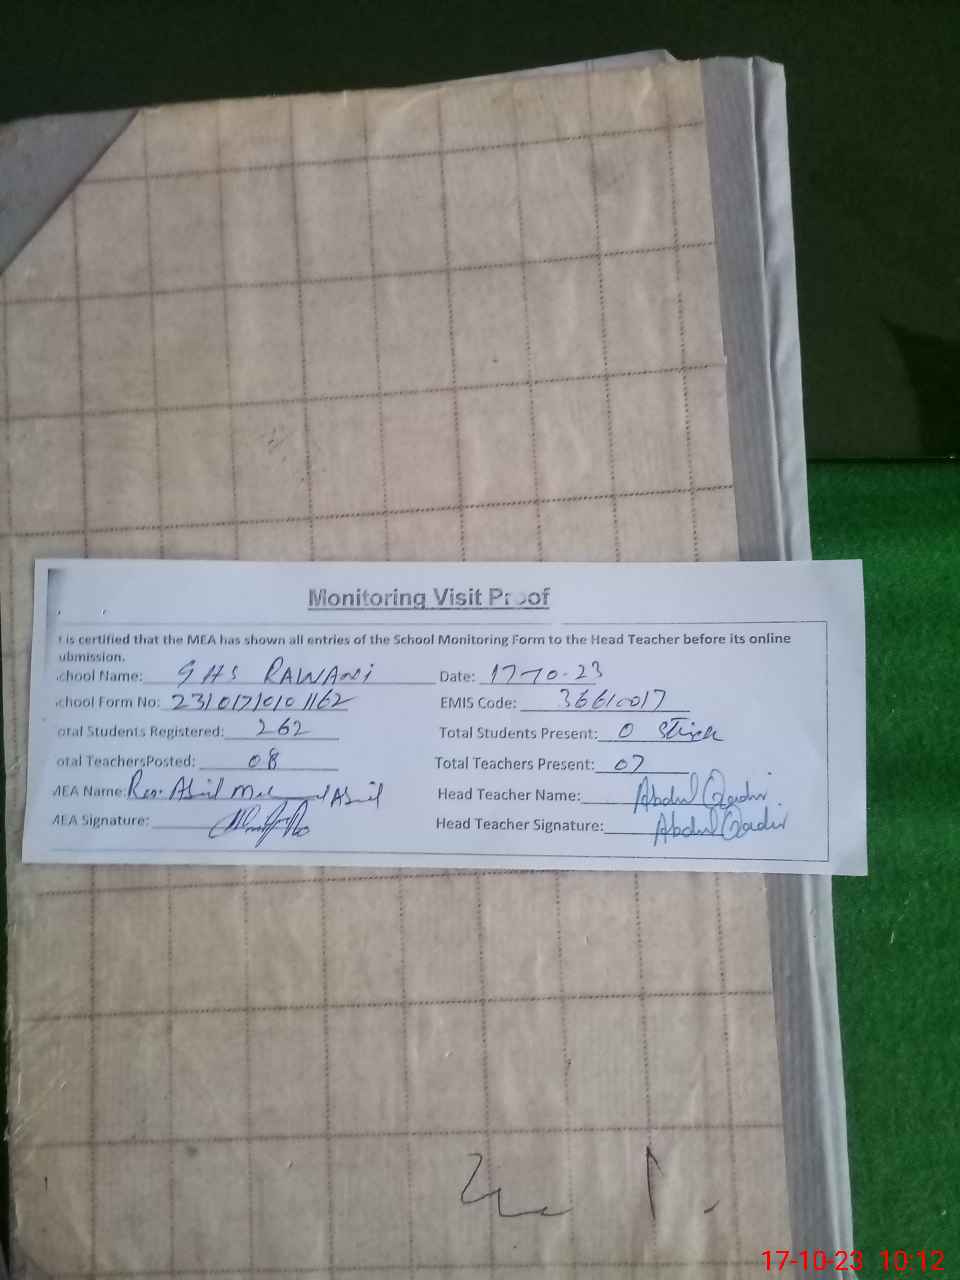 Monitoring Visit Proof
t is certified that the MEA has shown all entries of the School Monitoring Form to the Head Teacher before its online
ubmission.
chool Name: GHS RAWANI Date: 17-10-23
chool Form No: EMIS Code: 36610017
otal Students Registered: 262 Total Students Present: 0
otal TeachersPosted: 08 Total Teachers Present: 07
MEA Name: Head Teacher Name: Abdul Qadir
MEA Signature: Head Teacher Signature: Abdul Qadir
17-10-23 10:12